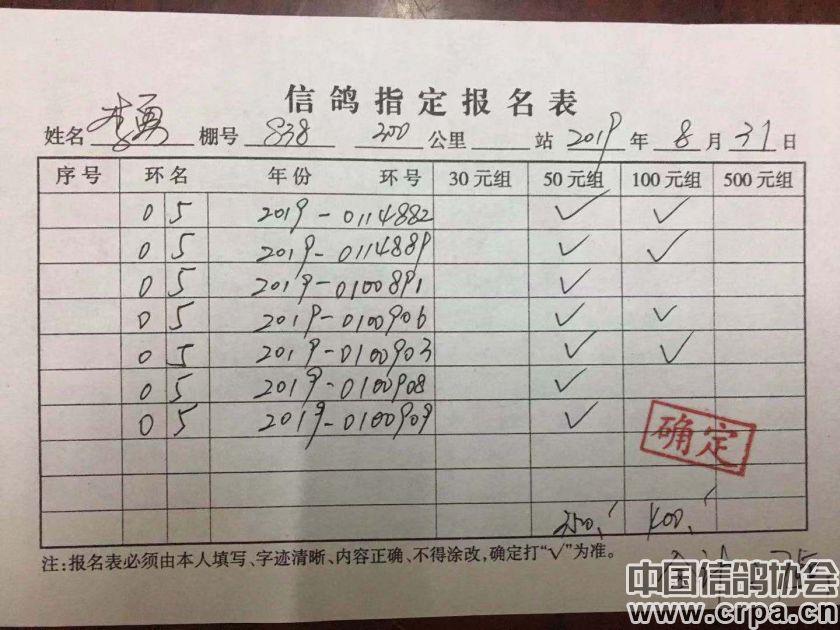 信鸽指定报名表
姓名 李勇 棚号 838 300 公里 站 2019 年 8 月 31 日
序号 环名 年份 环号 30元组 50元组 100元组 500元组
05 2019-0114882 ✓ ✓
05 2019-0114889 ✓ ✓
05 2019-0100891 ✓
05 2019-0100906 ✓ ✓
05 2019-0100903 ✓ ✓
05 2019-0100908 ✓
05 2019-0100909 ✓
确定
350 400
注:报名表必须由本人填写、字迹清晰、内容正确、不得涂改,确定打“√”为准。
中国信鸽协会
www.crpa.cn